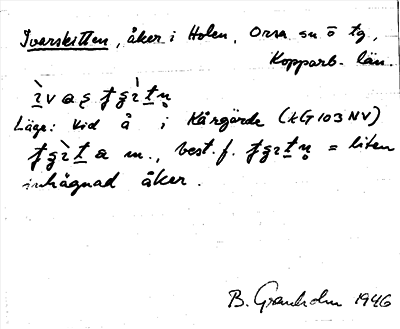 Ivarskitten, åker i Holen, Orsa sn o tg,
Kopparb. län.
Läge: Vid å i Kårgärde (kG 103 NV)
m., best. f. = liten
inhägnad åker.
B. Granholm 1946